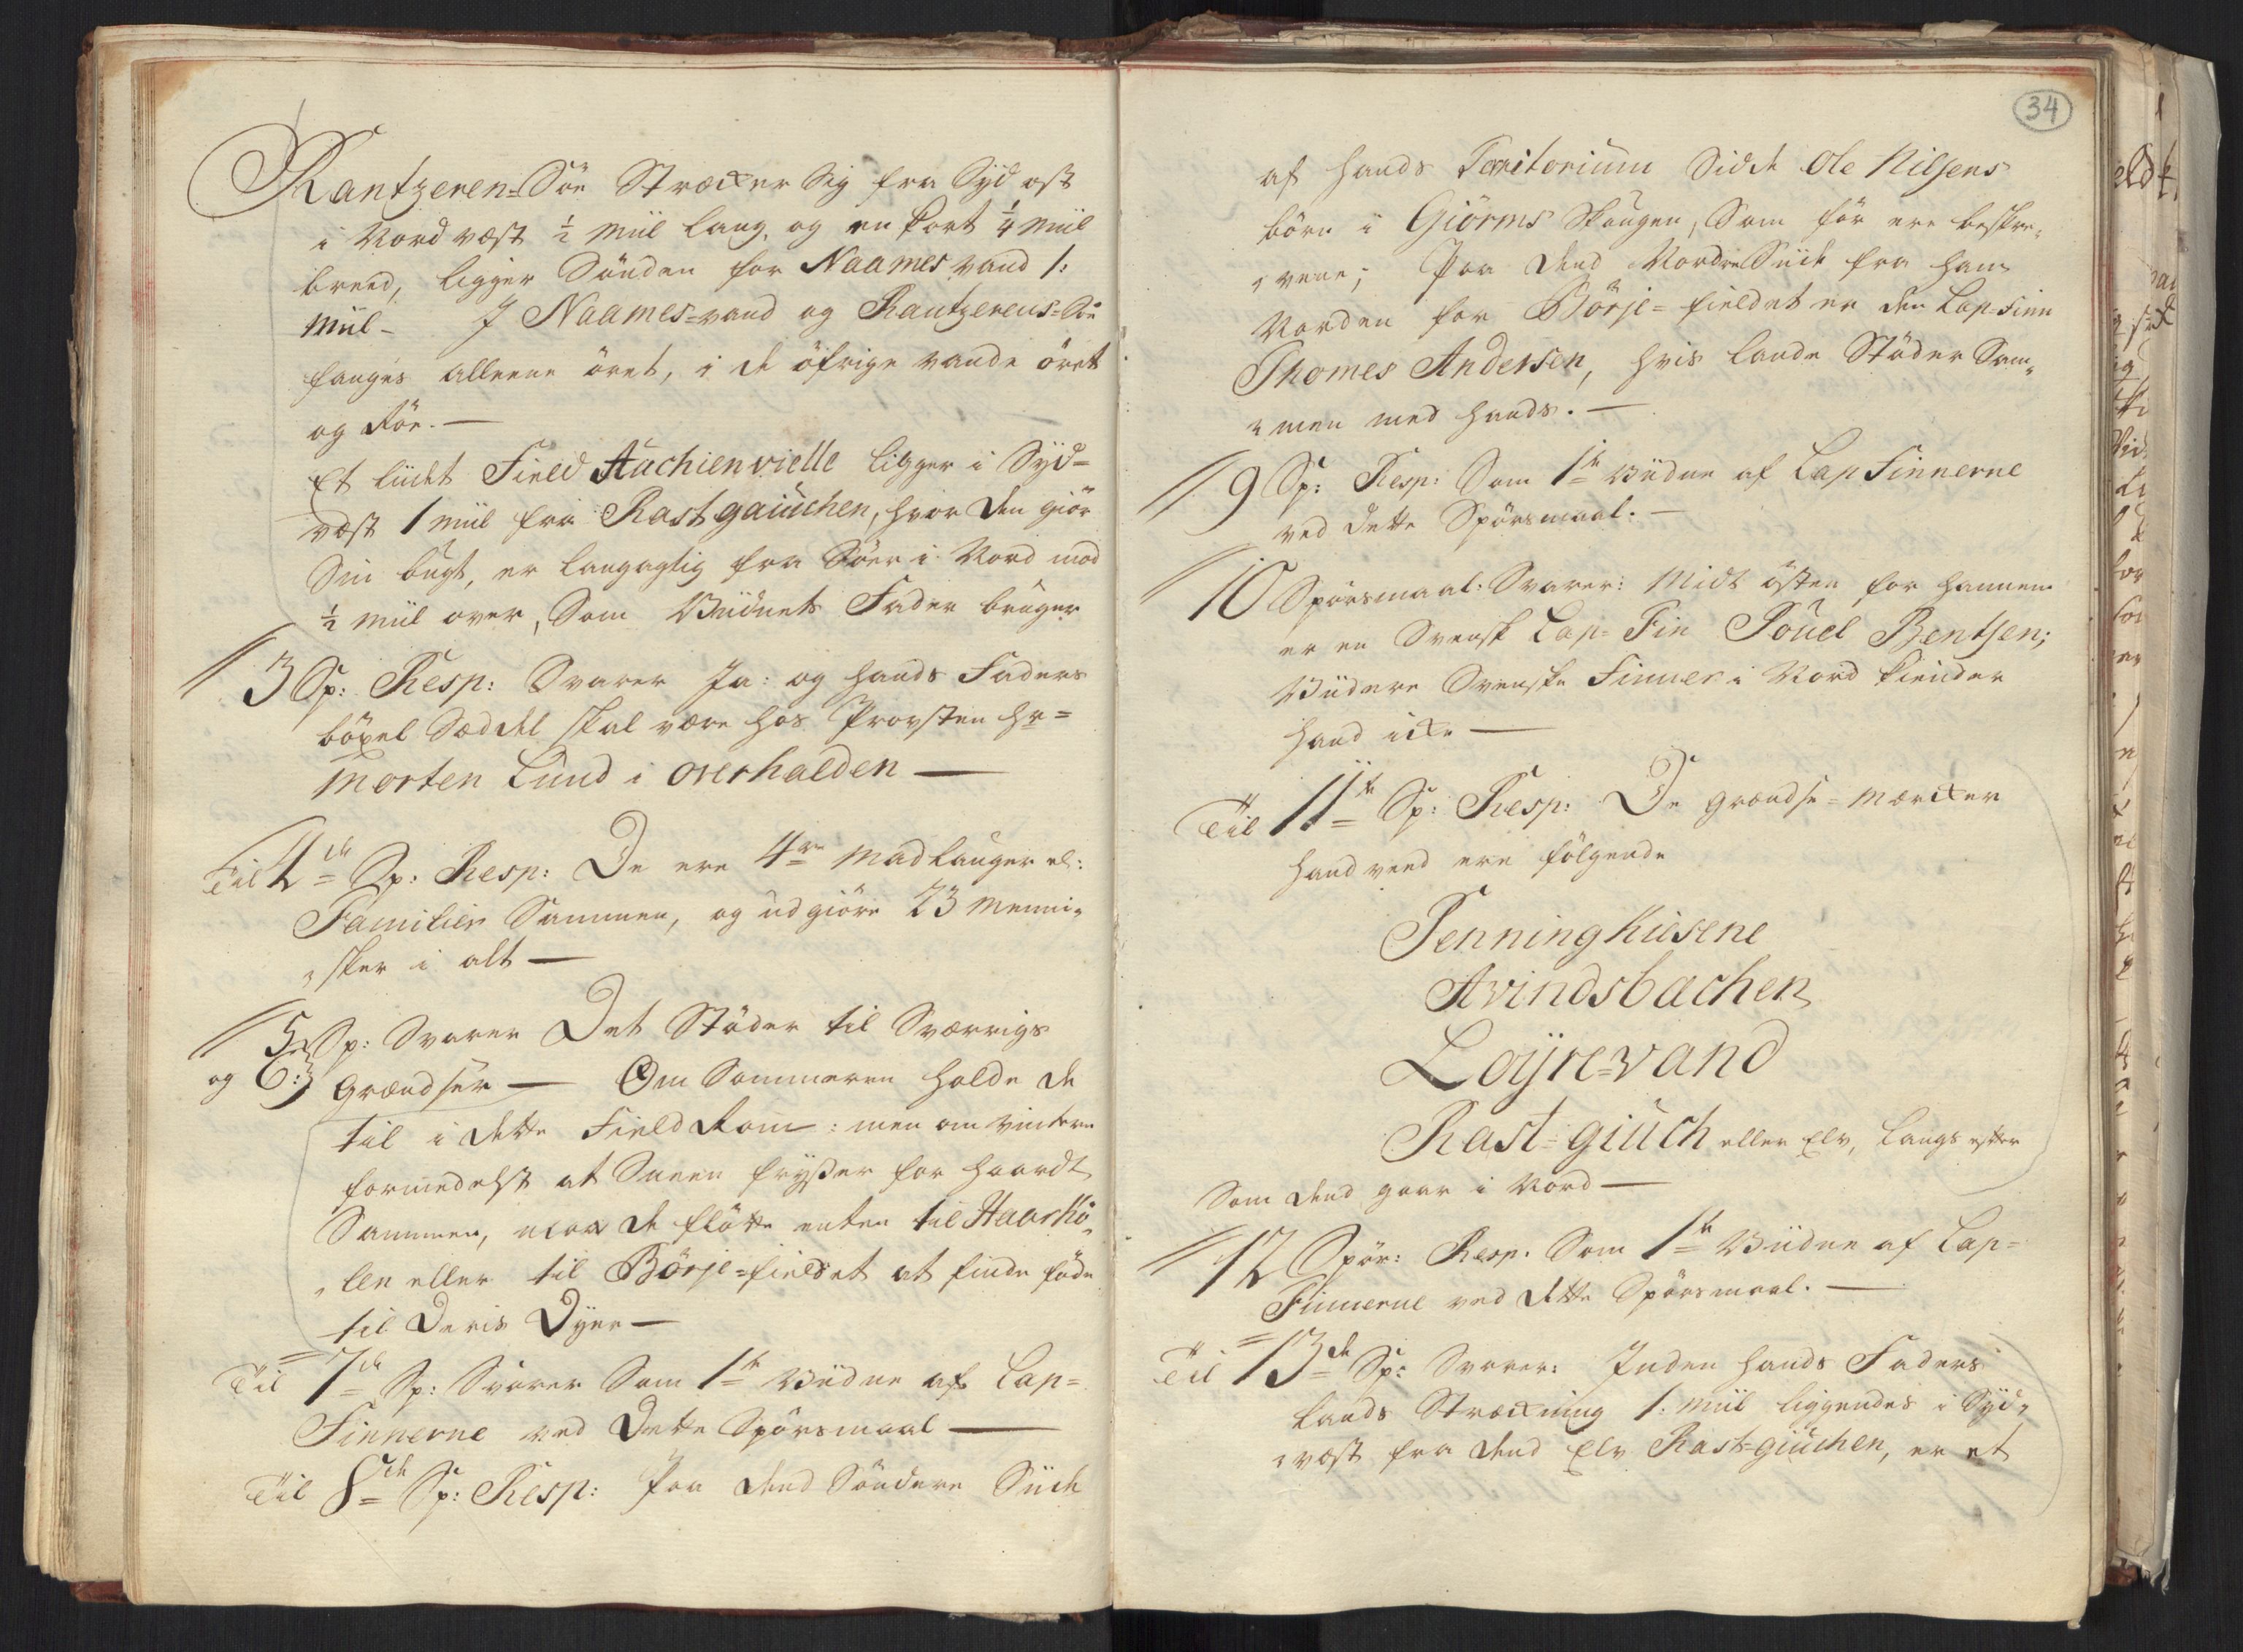 Rantzeren=Söe Strecker Sig fra Syd ost
i Nord væst ½ Miil lang, og en kort ¼ Miil
breed, ligger Sönden for Naames vand 1:
Miil – I Naames=vand og Rantzerens=Söe
fanges alleene öret, i de öfrige vande öret
og Röe. –
Et liidet Field Auchienvielle ligger i Syd=
væst 1 Miil fra Rastgaiüchen, hvor den giör
Sin bugt, er langagtig fra Söer i Nord med
½ Miil over, Som Viidnets Fader bruger
// 3 Sp: Resp: Svarer Ja: og hands Faders
böxel Seddel skal være hos Provsten Hr=
Morten Lund i Overhalden –
Til 4de Sp: Resp: De ere 4re Madlauger el:
Familier Sammen, og udgiöre 23 Menni=
=sker i alt –
// 5 Sp: Svarer Det Stöder til Sværrigs
og 6: Grændser – Om Sommeren holde de
til i dette Field Rom: men om vinteren
formedelst at Sneen frysser for haardt
Sammen, maa de flötte enten til Haarkiö=
=len eller til Börje=fieldet at finde föde
til Deris Dyer –
Til 7de Sp: Svarer Som 1te Viidne af Lap=
Finnerne ved Dette Spörsmaal –
Til 8de Sp: Resp: Paa dend Söndere Siide
34
af hands Territorium Sidde Ole Nilsens
börn i Giörms Skougen, Som för ere beskre=
=vene; Paa dend Nordre Siide fra ham
Norden for Börje=fieldet er den Lap=Finn
Thomes Andersen, hvis lande Stöder Sam=
=men med hands. –
// 9 Sp: Resp: Som 1te Viidne af Lap Finnerne
ved dette Spörsmaal. –
// 10 Spörsmaal: Svarer: Midt östen for hannem
er en Svensk Lap=Fin Pouel Bentsen;
Viidere Svenske Finner i Nord kiender
hand icke –
Til 11te Sp: Resp: De Grændse=Mærcker
hand veed ere fölgende
Penningkiesene
Avindsbachen
Löyrevand
Rast=giüch eller Elv, langs efter
Som dend gaar i Nord –
// 12 Spör: Resp: Som 1te Viidne af Lap=
Finnerne ved dette Spörsmaal. –
Til 13de Sp: Svarer: Inden hands Faders
lands Streckning 1: Miil liggendes i Syd=
=væst fra dend Elv Rast=giüchen, er et